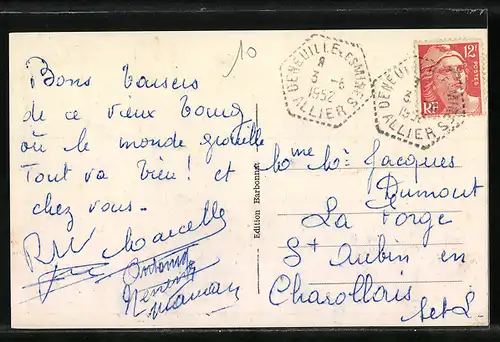 10
DENEUILLE LES MINES
8
3 - 6
1952
ALLIER
12F
POSTES
RF
Bons baisers
de ce vieux bourg
où le monde grouille
Tout va bien ! et
chez vous -
Marcelle
Maman
Edition Barbonnet
Mme Mr. Jacques
Dumont
La Forge
St Aubin en
Charollais
S et L.